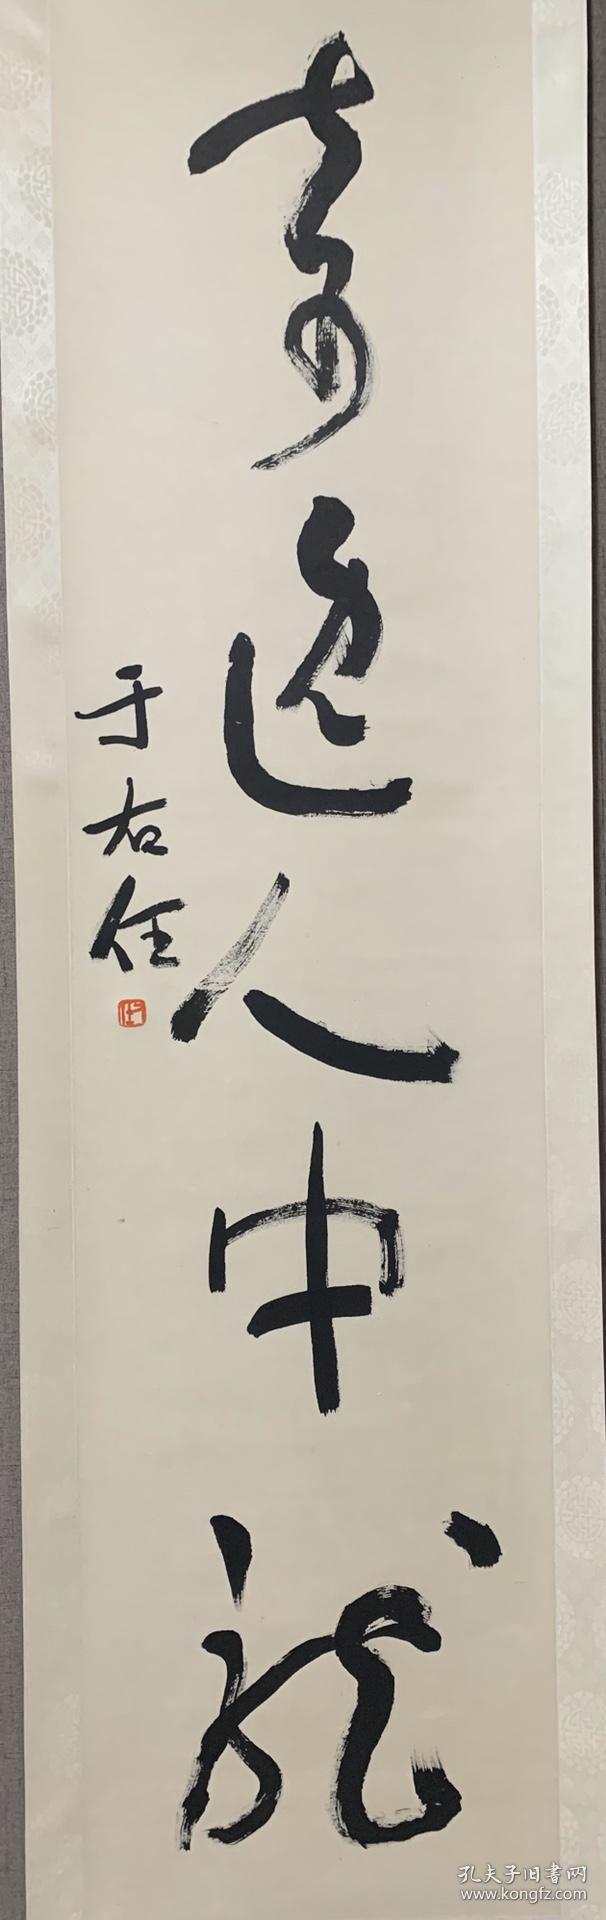 奇逸人中龙
于右任
孔夫子旧书网
www.kongfz.com